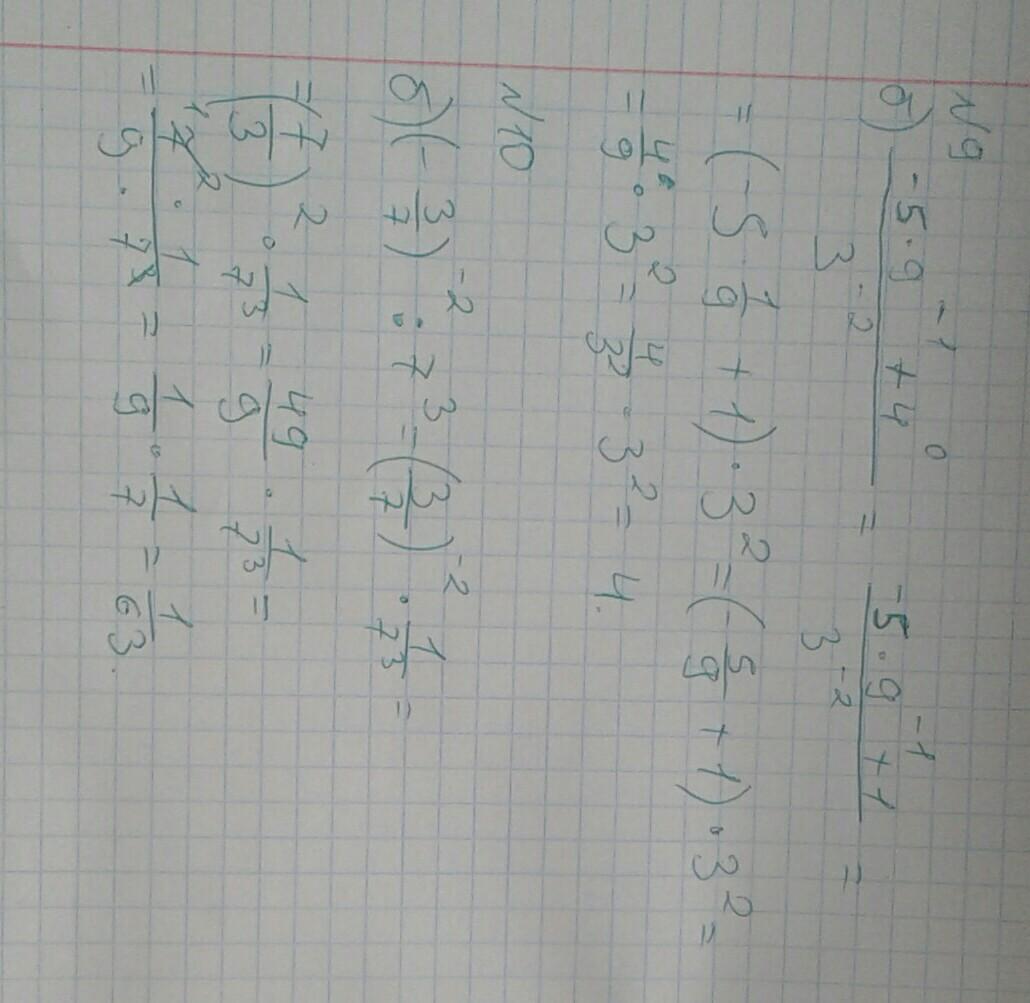 N9
б) (-5·9⁻¹+4⁰)/3⁻² = (-5·9⁻¹+1)/3⁻² =
= (-5 1/9 + 1)·3² = (-5/9 + 1)·3² =
= 4/9·3² = 4/3²·3² = 4.
N10
б) (-3/7)⁻² : 7³ = (3/7)⁻² · 1/7³ =
= (7/3)² · 1/7³ = 49/9 · 1/7³ =
= 7²/9 · 1/7³ = 1/9 · 1/7 = 1/63.